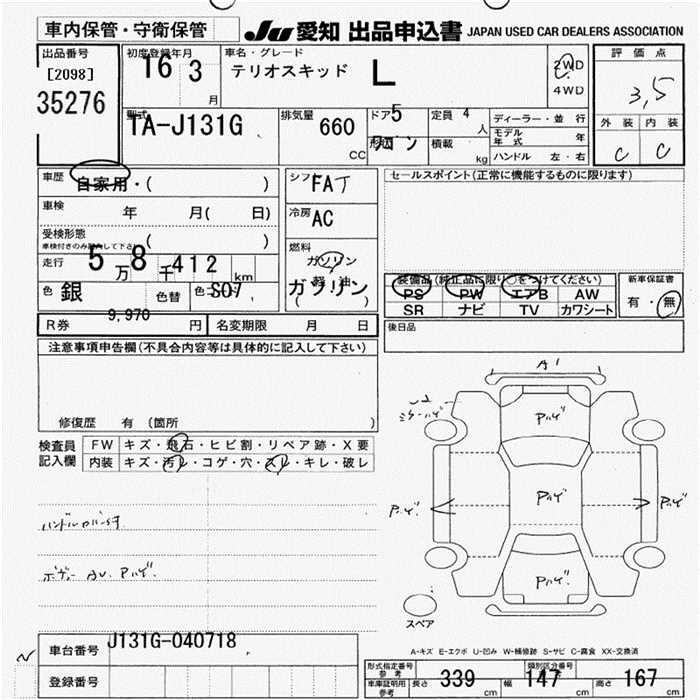 車内保管・守衛保管
JU 愛知 出品申込書 JAPAN USED CAR DEALERS ASSOCIATION
出品番号 [2098] 35276
初度登録年月 16 3 月
車名・グレード テリオスキッド L
2WD
4WD
評価点 3,5
外装 内装
C C
型式 TA-J131G
排気量 660 CC
ドア 5
形状 ワゴン
定員 4 人
積載 kg
ディーラー・並行
モデル年式 年
ハンドル 左・右
車歴 自家用・( )
シフト FAT
セールスポイント(正常に機能するものに限ります)
車検 年 月( 日)
冷房 AC
受検形態 ( )
車検付きのみ記入して下さい
燃料 ガソリン
軽油
ガソリン
( )
走行 5万8千412 km
色 銀 色替 色コード S07
装備品(純正品に限り○をつけてください)
PS PW エアB AW
SR ナビ TV カワシート
新車保証書
有・無
R券 9,970 円 名変期限 月 日
後日品
注意事項申告欄(不具合内容等は具体的に記入して下さい)
修復歴 有 (箇所 )
検査員記入欄
FW キズ・飛石・ヒビ割・リペア跡・X要
内装 キズ・汚レ・コゲ・穴・スレ・キレ・破レ
A1
Pハゲ
Pハゲ
Pハゲ
Pハゲ
Pハゲ.
ハンドルカバー付
ボディー AU. Pハゲ.
スペア
A-キズ E-エクボ U-凹み W-補修跡 S-サビ C-腐食 XX-交換済
車台番号 J131G-040718
登録番号
形式指定番号 参考
類別区分番号
車庫証明用参考 長さ 339 cm 幅 147 cm 高さ 167 cm